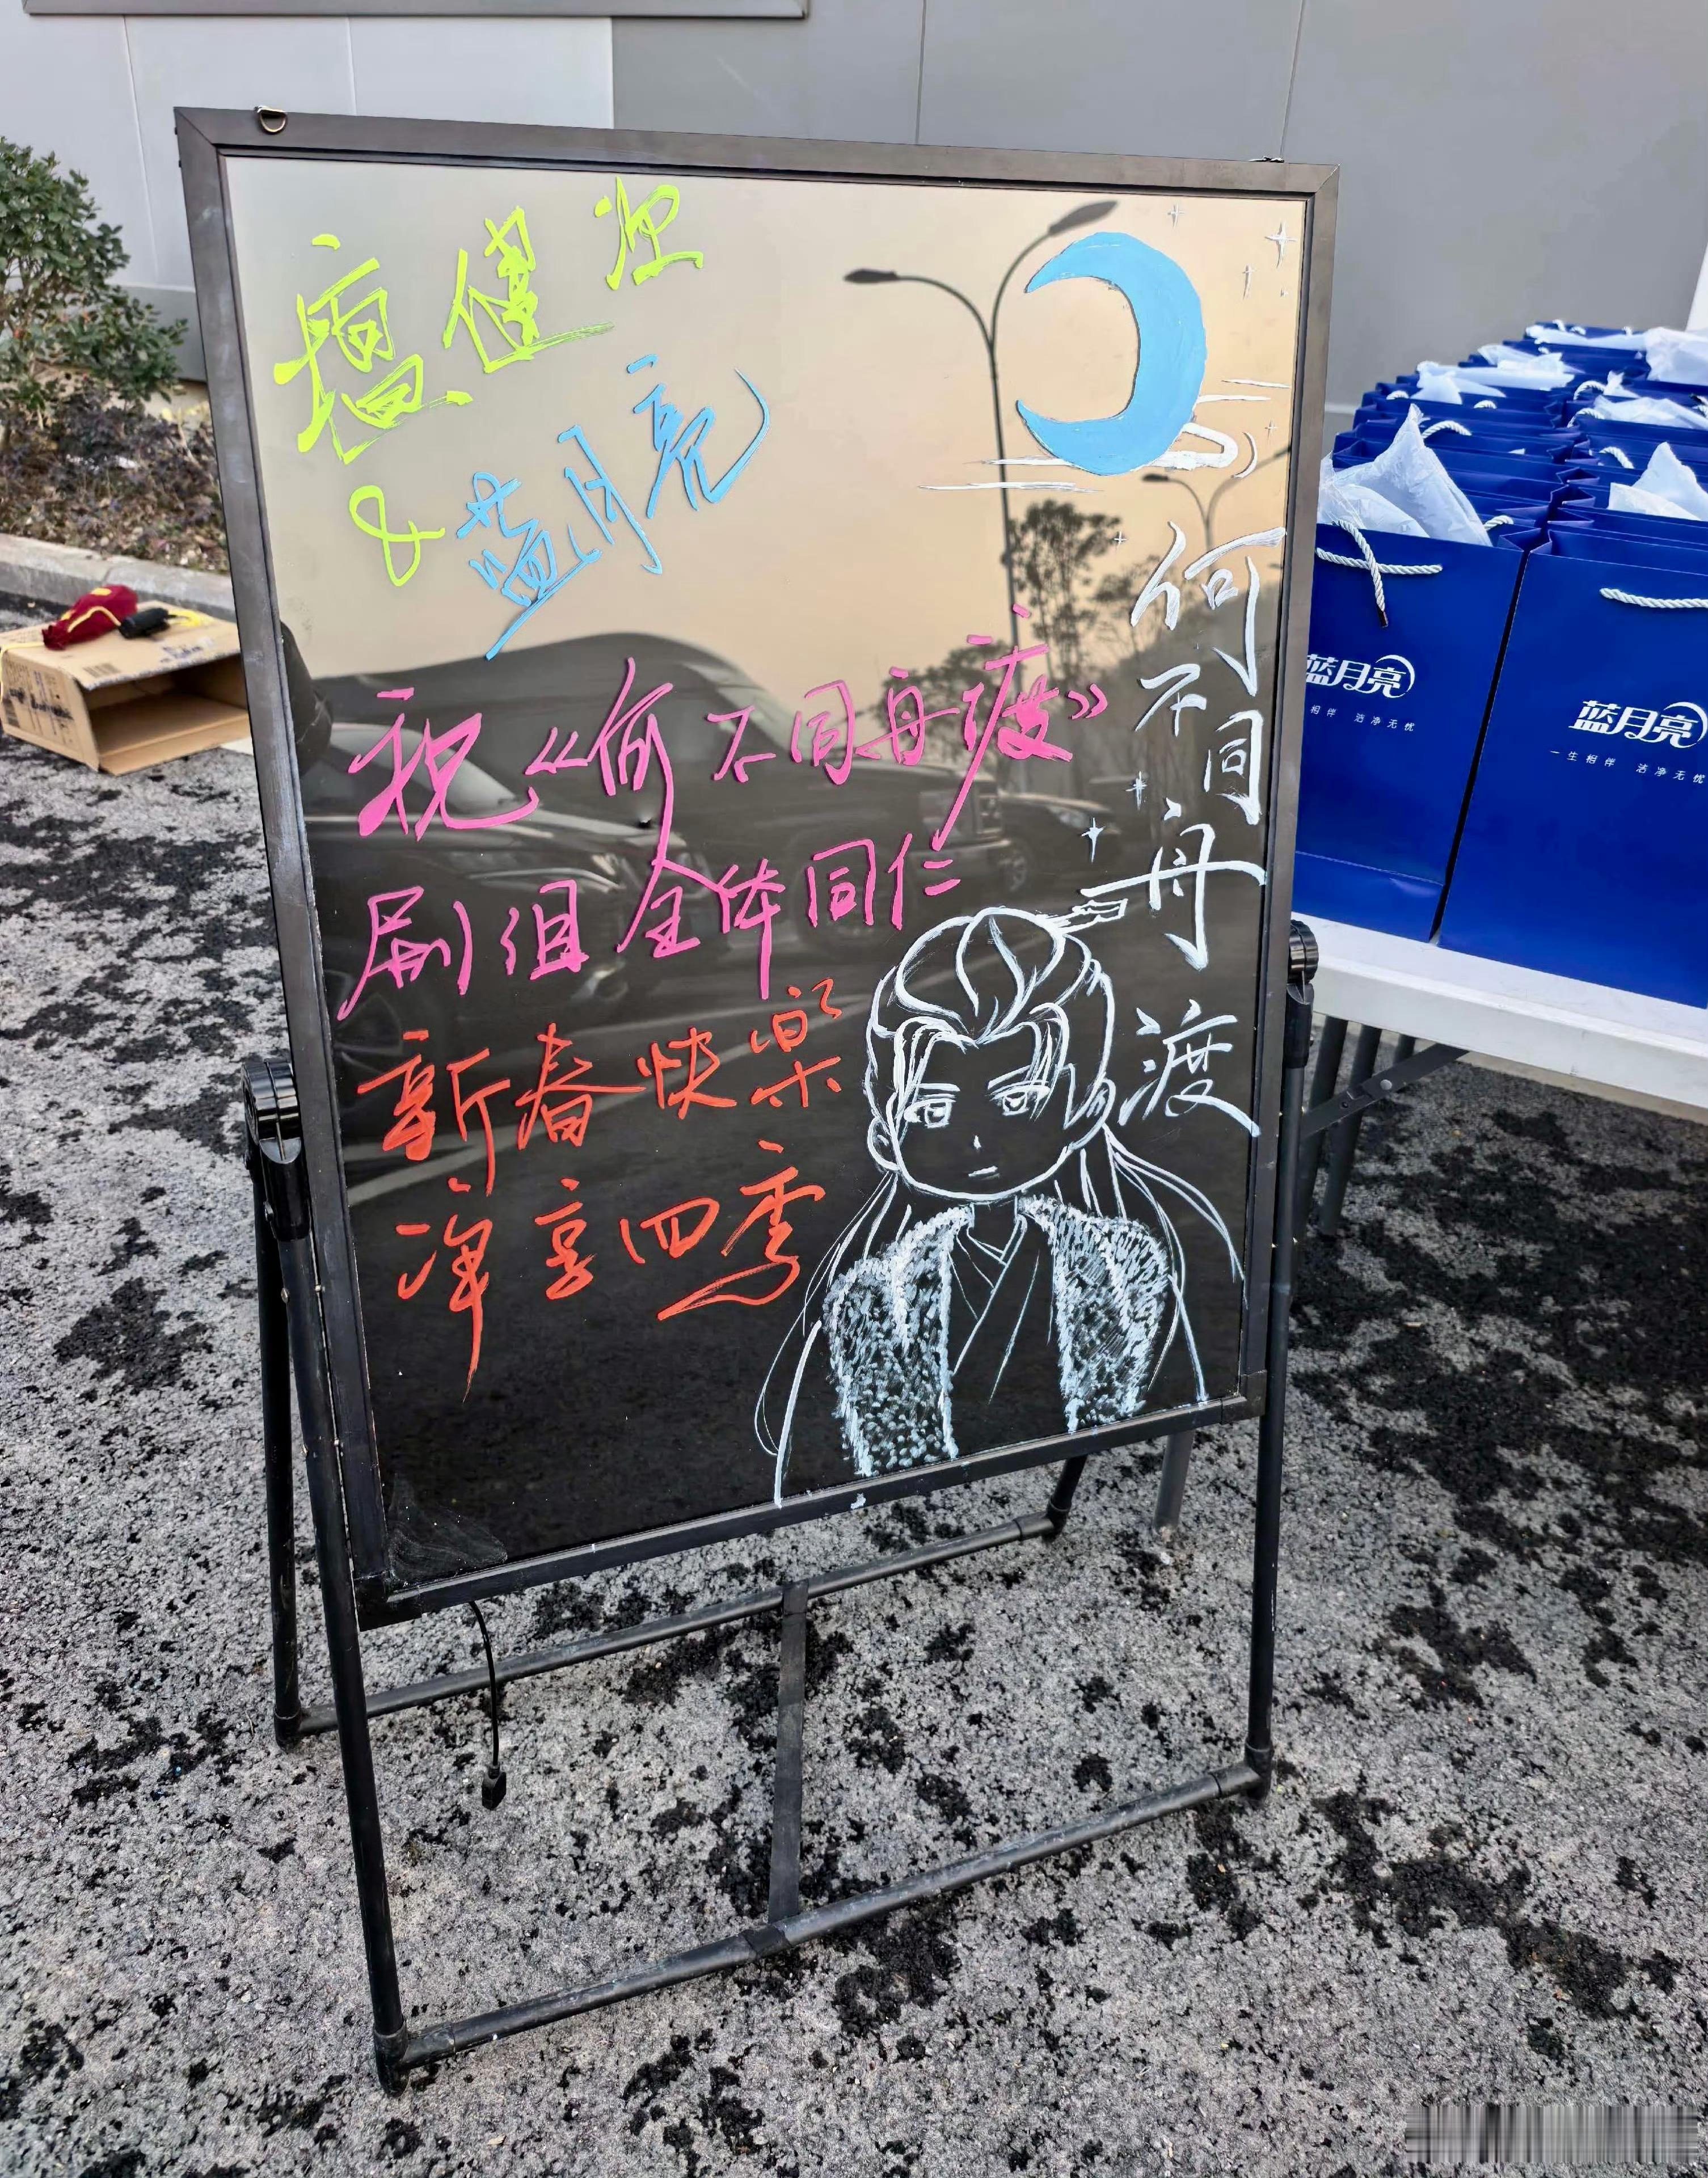 檀健次
&蓝月亮
祝《何不同舟渡》
剧组全体同仁
新春快乐
净享四季
何不同舟渡
蓝月亮
相伴 洁净无忧
蓝月亮
一生相伴 洁净无忧